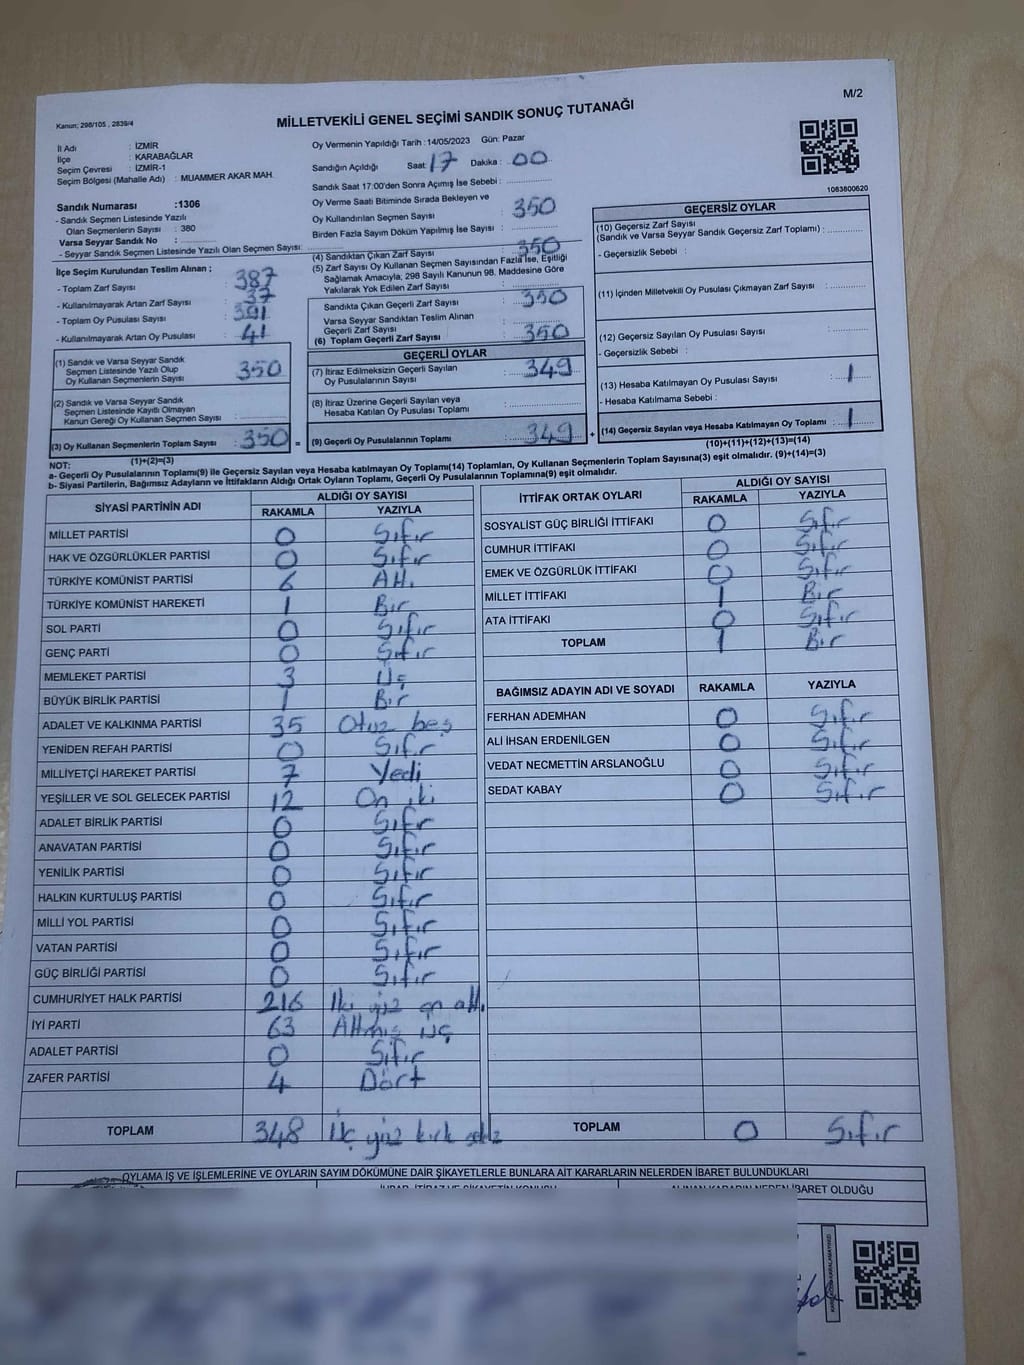 M/2
Kanun; 298/105 , 2839/4
MİLLETVEKİLİ GENEL SEÇİMİ SANDIK SONUÇ TUTANAĞI
İl Adı : İZMİR
İlçe : KARABAĞLAR
Seçim Çevresi : İZMİR-1
Seçim Bölgesi (Mahalle Adı) : MUAMMER AKAR MAH.
Oy Vermenin Yapıldığı Tarih : 14/05/2023 Gün: Pazar
Sandığın Açıldığı Saat: 17 Dakika : 00
Sandık Saat 17:00'den Sonra Açımış İse Sebebi :
Oy Verme Saati Bitiminde Sırada Bekleyen ve
Oy Kullandırılan Seçmen Sayısı : 350
Birden Fazla Sayım Döküm Yapılmış İse Sayısı :
1083800620
Sandık Numarası :1306
- Sandık Seçmen Listesinde Yazılı
Olan Seçmenlerin Sayısı : 380
Varsa Seyyar Sandık No :
- Seyyar Sandık Seçmen Listesinde Yazılı Olan Seçmen Sayısı:
İlçe Seçim Kurulundan Teslim Alınan ;
- Toplam Zarf Sayısı : 387
- Kullanılmayarak Artan Zarf Sayısı : 37
- Toplam Oy Pusulası Sayısı : 391
- Kullanılmayarak Artan Oy Pusulası : 41
(1) Sandık ve Varsa Seyyar Sandık
Seçmen Listesinde Yazılı Olup
Oy Kullanan Seçmenlerin Sayısı : 350
(2) Sandık ve Varsa Seyyar Sandık
Seçmen Listesinde Kayıtlı Olmayan
Kanun Gereği Oy Kullanan Seçmen Sayısı :
(3) Oy Kullanan Seçmenlerin Toplam Sayısı : 350 =
(1)+(2)=(3)
(4) Sandıktan Çıkan Zarf Sayısı : 350
(5) Zarf Sayısı Oy Kullanan Seçmen Sayısından Fazla İse, Eşitliği
Sağlamak Amacıyla, 298 Sayılı Kanunun 98. Maddesine Göre
Yakılarak Yok Edilen Zarf Sayısı :
Sandıkta Çıkan Geçerli Zarf Sayısı : 350
Varsa Seyyar Sandıktan Teslim Alınan
Geçerli Zarf Sayısı :
(6) Toplam Geçerli Zarf Sayısı : 350
GEÇERLİ OYLAR
(7) İtiraz Edilmeksizin Geçerli Sayılan
Oy Pusulalarının Sayısı : 349
(8) İtiraz Üzerine Geçerli Sayılan veya
Hesaba Katılan Oy Pusulası Toplamı :
(9) Geçerli Oy Pusulalarının Toplamı : 349 +
GEÇERSİZ OYLAR
(10) Geçersiz Zarf Sayısı
(Sandık ve Varsa Seyyar Sandık Geçersiz Zarf Toplamı) :
- Geçersizlik Sebebi :
(11) İçinden Milletvekili Oy Pusulası Çıkmayan Zarf Sayısı :
(12) Geçersiz Sayılan Oy Pusulası Sayısı :
- Geçersizlik Sebebi :
(13) Hesaba Katılmayan Oy Pusulası Sayısı : 1
- Hesaba Katılmama Sebebi :
(14) Geçersiz Sayılan veya Hesaba Katılmayan Oy Toplamı : 1
(10)+(11)+(12)+(13)=(14)
NOT:
a- Geçerli Oy Pusulalarının Toplamı(9) ile Geçersiz Sayılan veya Hesaba katılmayan Oy Toplamı(14) Toplamları, Oy Kullanan Seçmenlerin Toplam Sayısına(3) eşit olmalıdır. (9)+(14)=(3)
b- Siyasi Partilerin, Bağımsız Adayların ve İttifakların Aldığı Ortak Oyların Toplamı, Geçerli Oy Pusulalarının Toplamına(9) eşit olmalıdır.
SİYASİ PARTİNİN ADI ALDIĞI OY SAYISI
RAKAMLA YAZIYLA
MİLLET PARTİSİ 0 Sıfır
HAK VE ÖZGÜRLÜKLER PARTİSİ 0 Sıfır
TÜRKİYE KOMÜNİST PARTİSİ 6 Altı
TÜRKİYE KOMÜNİST HAREKETİ 1 Bir
SOL PARTİ 0 Sıfır
GENÇ PARTİ 0 Sıfır
MEMLEKET PARTİSİ 3 Üç
BÜYÜK BİRLİK PARTİSİ 1 Bir
ADALET VE KALKINMA PARTİSİ 35 Otuz beş
YENİDEN REFAH PARTİSİ 0 Sıfır
MİLLİYETÇİ HAREKET PARTİSİ 7 Yedi
YEŞİLLER VE SOL GELECEK PARTİSİ 12 On iki
ADALET BİRLİK PARTİSİ 0 Sıfır
ANAVATAN PARTİSİ 0 Sıfır
YENİLİK PARTİSİ 0 Sıfır
HALKIN KURTULUŞ PARTİSİ 0 Sıfır
MİLLİ YOL PARTİSİ 0 Sıfır
VATAN PARTİSİ 0 Sıfır
GÜÇ BİRLİĞİ PARTİSİ 0 Sıfır
CUMHURİYET HALK PARTİSİ 216 İki yüz on altı
İYİ PARTİ 63 Altmış üç
ADALET PARTİSİ 0 Sıfır
ZAFER PARTİSİ 4 Dört
TOPLAM 348 Üç yüz kırk sekiz
İTTİFAK ORTAK OYLARI ALDIĞI OY SAYISI
RAKAMLA YAZIYLA
SOSYALİST GÜÇ BİRLİĞİ İTTİFAKI 0 Sıfır
CUMHUR İTTİFAKI 0 Sıfır
EMEK VE ÖZGÜRLÜK İTTİFAKI 0 Sıfır
MİLLET İTTİFAKI 1 Bir
ATA İTTİFAKI 0 Sıfır
TOPLAM 1 Bir
BAĞIMSIZ ADAYIN ADI VE SOYADI RAKAMLA YAZIYLA
FERHAN ADEMHAN 0 Sıfır
ALİ İHSAN ERDENİLGEN 0 Sıfır
VEDAT NECMETTİN ARSLANOĞLU 0 Sıfır
SEDAT KABAY 0 Sıfır
TOPLAM 0 Sıfır
OYLAMA İŞ VE İŞLEMLERİNE VE OYLARIN SAYIM DÖKÜMÜNE DAİR ŞİKAYETLERLE BUNLARA AİT KARARLARIN NELERDEN İBARET BULUNDUKLARI
ALINAN KARARIN NEDEN İBARET OLDUĞU